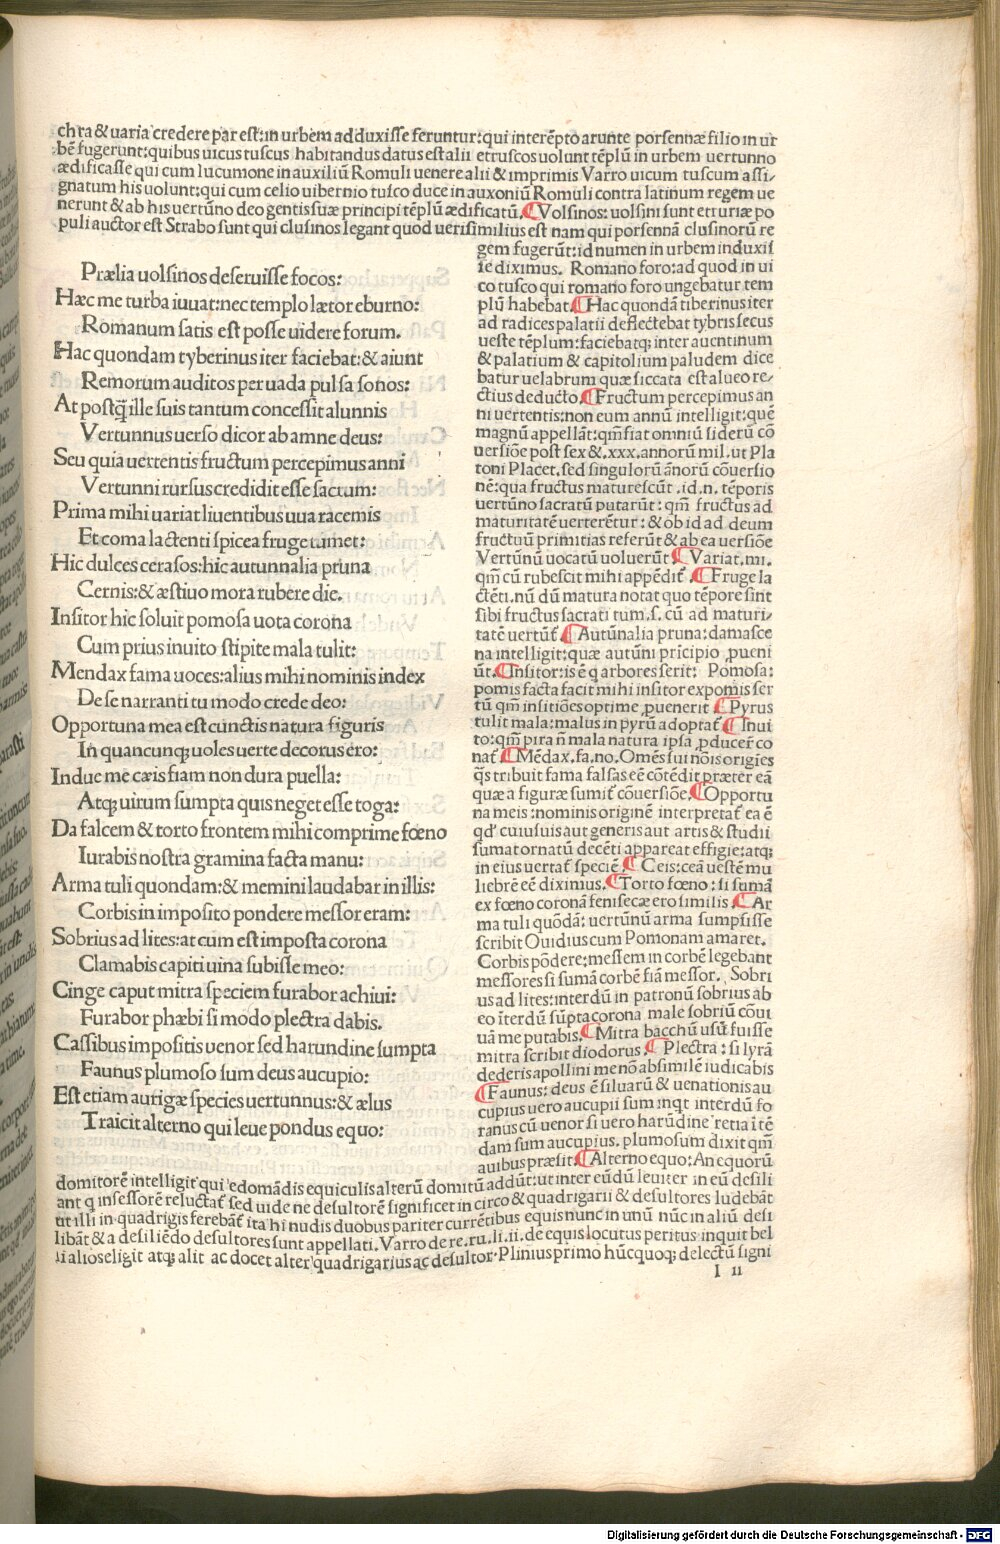 chra & uaria credere par est: in urbem adduxisse feruntur: qui interēpto arunte porsennæ filio in ur
bē fugerunt: quibus uicus tuscus habitandus datus est alii etruscos uolunt tēplū in urbem uertunno
ædificasse qui cum lucumone in auxiliū Romuli uenere alii & imprimis Varro uicum tuscum assi-
gnatum his uolunt: qui cum celio uibernio tusco duce in auxoniū Romuli contra latinum regem ue
nerunt & ab his uertūno deo gentis suæ principi tēplū ædificatū. ⸿Volsinos: uolsini sunt etruriæ po
puli auctor est Strabo sunt qui clusinos legant quod uerisimilius est nam qui porsennā clusinorū re
Prælia uolsinos deseruisse focos:
Hæc me turba iuuat: nec templo lætor eburno:
Romanum satis est posse uidere forum.
Hac quondam tyberinus iter faciebat: & aiunt
Remorum auditos per uada pulsa sonos:
At postq̄ ille suis tantum concessit alunnis
Vertunnus uerso dicor ab amne deus:
Seu quia uertentis fructum percepimus anni
Vertunni rursus credidit esse sacrum:
Prima mihi uariat liuentibus uua racemis
Et coma lactenti spicea fruge tumet:
Hic dulces cerasos: hic autunnalia pruna
Cernis: & æstiuo mora rubere die.
Insitor hic soluit pomosa uota corona
Cum prius inuito stipite mala tulit:
Mendax fama uoces: alius mihi nominis index
De se narranti tu modo crede deo:
Opportuna mea est cunctis natura figuris
In quancunq; uoles uerte decorus ero:
Indue me cæis fiam non dura puella:
Atq; uirum sumpta quis neget esse toga:
Da falcem & torto frontem mihi comprime fœno
Iurabis nostra gramina facta manu:
Arma tuli quondam: & memini laudabar in illis:
Corbis in imposito pondere messor eram:
Sobrius ad lites: at cum est imposta corona
Clamabis capiti uina subisse meo:
Cinge caput mitra speciem furabor achiui:
Furabor phæbi si modo plectra dabis.
Cassibus impositis uenor sed harundine sumpta
Faunus plumoso sum deus aucupio:
Est etiam aurigæ species uertunnus: & ælius
Traicit alterno qui leue pondus equo:
gem fugerūt: id numen in urbem induxis
se diximus. Romano foro: ad quod in ui
co tusco qui romano foro ungebatur tem
plū habebat. ⸿Hac quondā tiberinus iter
ad radices palatii deflectebat tybris secus
ueste tēplum: faciebatq; inter auentinum
& palatium & capitolium paludem dice
batur uelabrum quæ siccata est alueo re-
ctius deducto. ⸿Fructum percepimus an
ni uertentis: non eum annū intelligit: quē
magnū appellāt: qm̄ fiat omniū siderū cō
uersiōe post sex &.xxx. annorū mil. ut Pla
toni Placet. sed singulorū ānorū cōuersio
nē: qua fructus maturescūt .id.n. tēporis
uertūno sacratū putarūt: qm̄ fructus ad
maturitatē uerterētur: & ob id ad deum
fructuū primitias referūt & ab ea uersiōe
Vertūnū uocatū uoluerūt ⸿Variat. mi.
qm̄ cū rubescit mihi appēdit̄ ⸿Fruge la
ctēti. nū dū matura notat quo tēpore sint
sibi fructus sacrati tum. s. cū ad maturi-
tatē uertūt̄ ⸿Autūnalia pruna: damasce
na intelligit: quæ autūni pricipio ꝓueni
ūt. ⸿Insitor: is ē q arbores serit: Pomosa:
pomis facta facit mihi insitor expomis ser
tū qm̄ insitiōes optime ꝓuenerit ⸿Pyrus
tulit mala: malus in pyrū adoptat̄ ⸿Inui
to: qm̄ pira n̄ mala natura ipsa ꝓducer̄ co
nat̄ ⸿Mēdax. fa. no. Omēs sui nōis origīes
q̄s tribuit fama falsas eē cōtēdit præter eā
quæ a figuræ sumit̄ cōuersiōe. ⸿Opportu
na meis: nominis originē interpretat̄ ea ē
qd' cuiusuis aut generis aut artis & studii
sumat ornatū decēti appareat effigie: atq;
in eius uertat̄ speciē. ⸿Ceis: cea uestē mu
liebrē eē diximus. ⸿Torto fœno: si sumā
ex fœno coronā fenisecæ ero similis. ⸿Ar
ma tuli quōdā: uertūnū arma sumpsisse
scribit Ouidius cum Pomonam amaret.
Corbis pōdere: messem in corbē legebant
messores si sumā corbē fiā messor. Sobri
us ad lites: interdū in patronū sobrius ab
eo īterdū sūpta corona male sobriū cōui
uā me putabis. ⸿Mitra bacchū usū fuisse
mitra scribit diodorus. ⸿Plectra: si lyrā
dederis apollini me nō absimilē iudicabis
⸿Faunus: deus ē siluarū & uenationis au
cupius uero aucupii sum inqt interdū fo
ranus cū uenor si uero harūdine retia ītē
dam sum aucupius. plumosum dixit qm̄
auibus præsit. ⸿Alterno equo: An equorū
domitorē intelligit qui edomādis equiculis alterū domitū addūt: ut inter eūdū leuiter in eū desili
ant q insessorē reluctat̄ sed uide ne desultorē significet in circo & quadrigarii & desultores ludebāt
ut illi in quadrigis ferebāt̄ ita hi nudis duobus pariter currētibus equis nunc in unū nūc in aliū desi
libāt & a desiliēdo desultores sunt appellati. Varro de re. ru. li. ii. de equis locutus peritus inquit bel
li alios eligit atq; alit ac docet alter quadrigarius ac desultor. Plinius primo hūc quoq; delectū signi
I ii
Digitalisierung gefördert durch die Deutsche Forschungsgemeinschaft - DFG